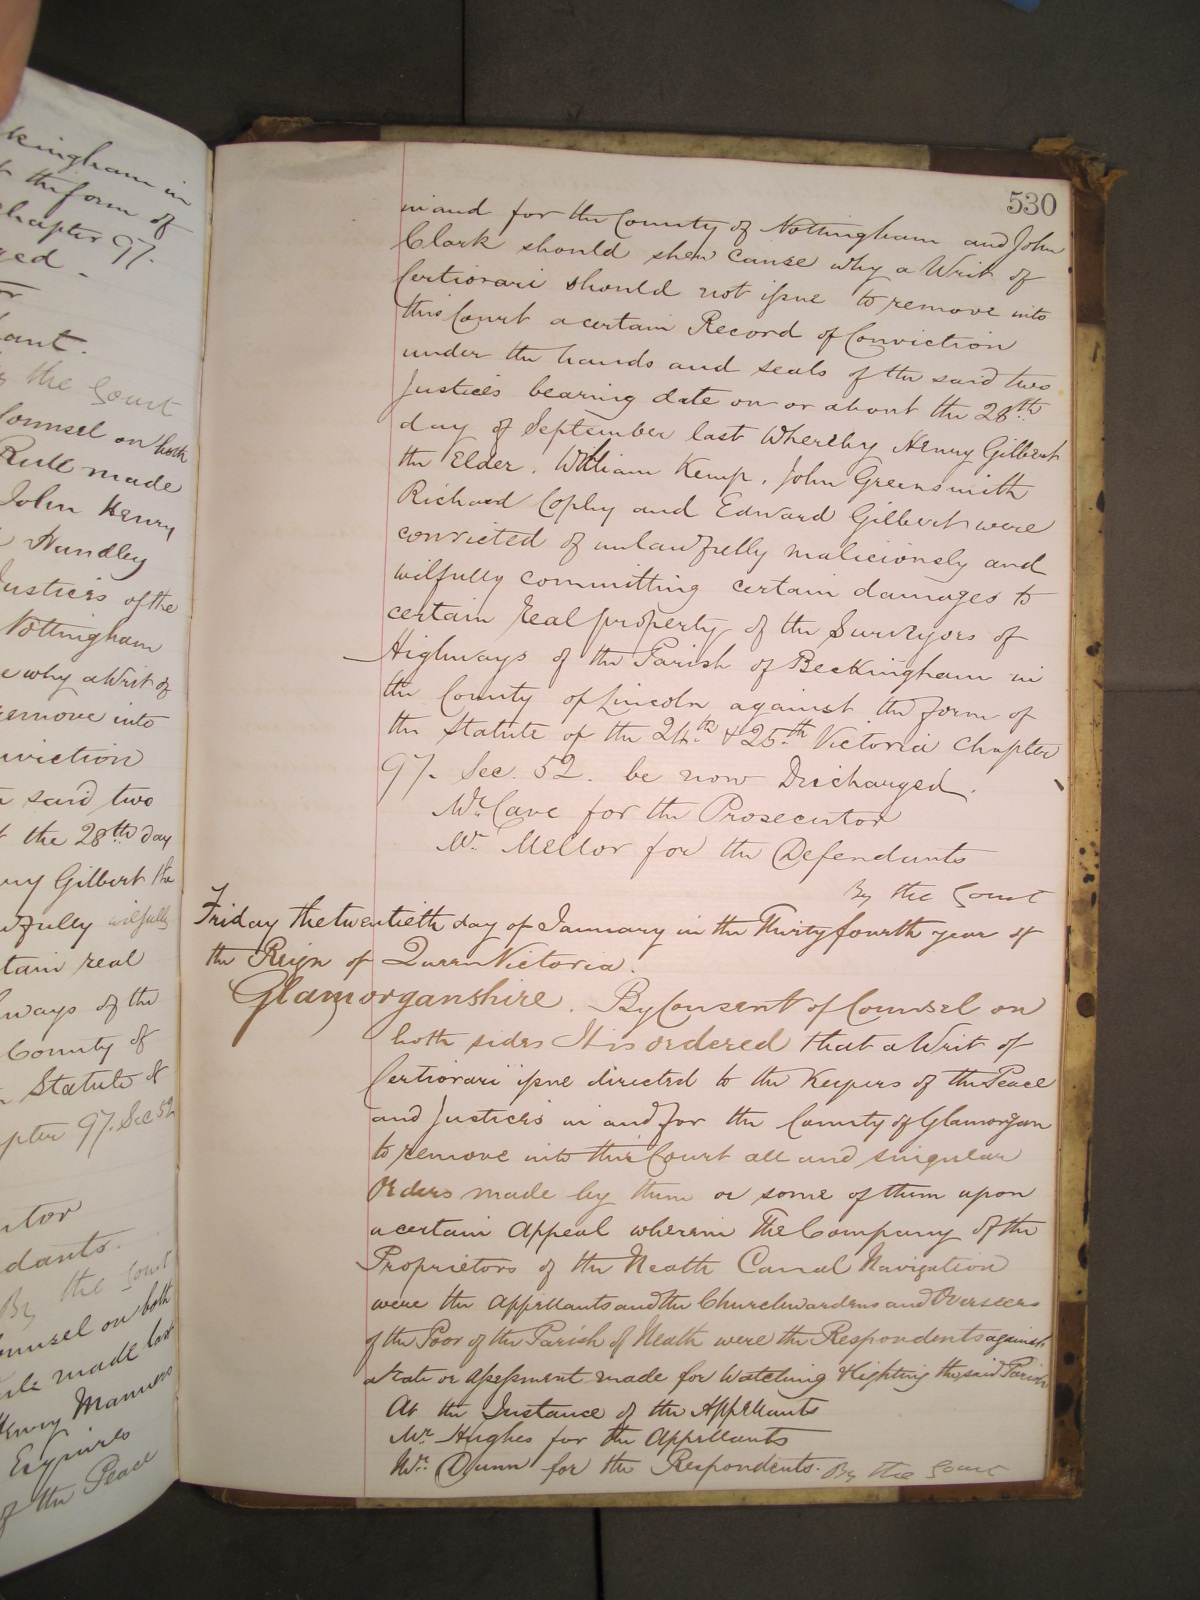 kingham in
the form of
chapter 97.
ged -
ant.
the Court
Counsel on both
Rule made
John Henry
Hundley
Justices of the
Nottingham
why a Writ of
remove into
nviction
said two
the 28th day
ry Gilbert the
wfully wilfully
tain real
hways of the
County of
Statute of
apter 97. Sec 52
utor
dants.
By the Court
ounsel on both
ule made last
Henry Manners
Esquires
of the Peace
530
in and for the County of Nottingham and John
Clark should shew cause why a Writ of
Certiorari should not issue to remove into
this Court a certain Record of Conviction
under the hands and seals of the said two
Justices bearing date on or about the 28th
day of September last Whereby Henry Gilbert
the Elder, William Kemp, John Greensmith
Richard Copley and Edward Gilbert were
convicted of unlawfully maliciously and
wilfully committing certain damages to
certain real property of the Surveyors of
Highways of the Parish of Beckingham in
the County of Lincoln against the form of
the Statute of the 24th & 25th Victoria Chapter
97. Sec. 52. be now Discharged.
Mr. Cave for the Prosecutor
Mr. Mellor for the Defendants
By the Court
Friday the twentieth day of January in the Thirty fourth year of
the Reign of Queen Victoria.
Glamorganshire. By Consent of Counsel on
both sides It is ordered that a Writ of
Certiorari issue directed to the Keepers of the Peace
and Justices in and for the County of Glamorgan
to remove into this Court all and singular
Orders made by them or some of them upon
a certain Appeal wherein The Company of the
Proprietors of the Neath Canal Navigation
were the Appellants and the Churchwardens and Overseers
of the Poor of the Parish of Neath were the Respondents against
a Rate or assessment made for Watching & Lighting the said Parish
At the Instance of the Appellants
Mr. Hughes for the Appellants
Mr. Dunn for the Respondents. By the Court